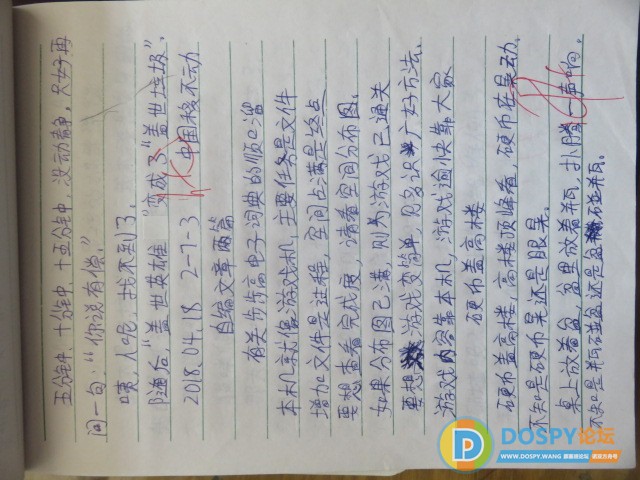 五分钟,十分钟,十五分钟,没动静,只好再
问一句:“你说有偿。”
咦,人呢,找不到了。
随后,“盖世英雄”变成了“盖世垃圾”。
2018.04.18 2-7-3 中国移不动
自编文章两篇
有关步步高电子词典的顺口溜
本机就像游戏机,主要任务是文件
增加文件是进程,空间占满是终点
要想查看完成度,请看空间分布图。
如果分布图已满,则为游戏已通关
要想游戏变简单,见多识广好方法。
游戏内容靠本机,游戏愉快靠大家
硬币盖高楼
硬币盖高楼,高楼顶峰看,硬币在晃动。
不知是硬币晃还是眼晃。
桌上放着盆,盆里放着瓶,扑腾一声响,
不知是瓶碰盆还是盆碰瓶。
DOSPY论坛
WWW.DOSPY.WANG